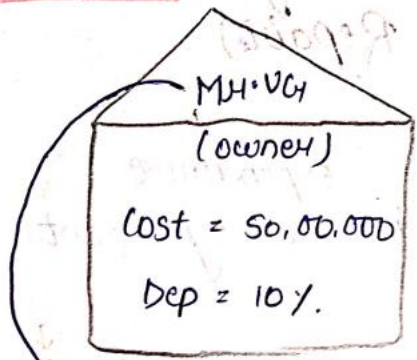 Mr. VG
(owner)
Cost = 50,00,000
Dep = 10%.